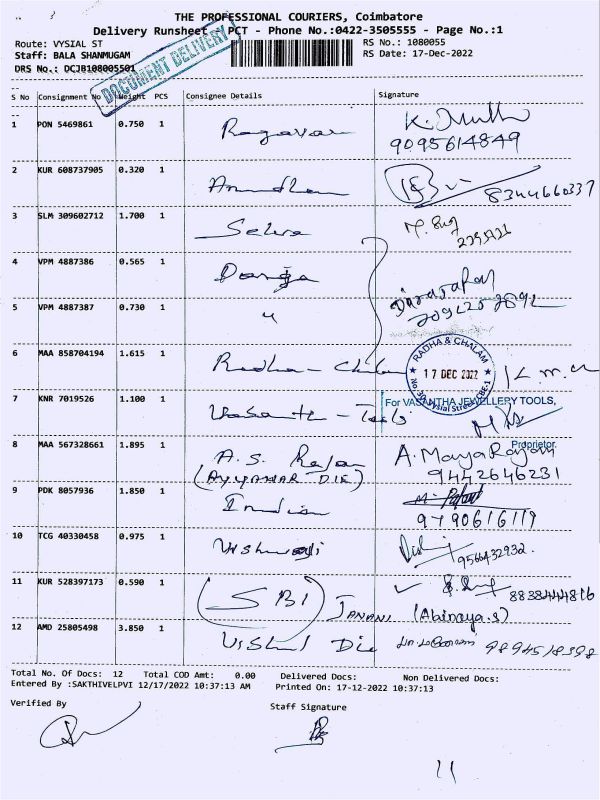 THE PROFESSIONAL COURIERS, Coimbatore
Delivery Runsheet - PCT - Phone No.:0422-3505555 - Page No.:1
Route: VYSIAL ST
RS No.: 1080055
Staff: BALA SHANMUGAM
RS Date: 17-Dec-2022
DRS No.: DCJB108005501
DOCUMENT DELIVERY
S No Consignment No Weight PCS Consignee Details Signature
1 PON 5469861 0.750 1 Ragavan
9095614849
2 KUR 608737905 0.320 1
8344660337
3 SLM 309602712 1.700 1 Selva
4 VPM 4887386 0.565 1
5 VPM 4887387 0.730 1 "
6 MAA 858704194 1.615 1 Radha -
RADHA & CHALAM
17 DEC 2022
7 KNR 7019526 1.100 1 Vasanth - Tools
For VASANTHA JEWELLERY TOOLS,
Proprietor.
8 MAA 567328661 1.895 1 A.S. Rajan A. MayaRajam
(AYYANAR DIE) 9442646231
9 PDK 8057936 1.850 1 Indian
9790616119
10 TCG 40330458 0.975 1 9566432932.
11 KUR 528397173 0.590 1 (SBI) JANANI
8838444816
(Abinaya.s)
12 AMD 25805498 3.850 1 Vishal Die
9894518398
Total No. Of Docs: 12 Total COD Amt: 0.00 Delivered Docs: Non Delivered Docs:
Entered By :SAKTHIVELPVI 12/17/2022 10:37:13 AM Printed On: 17-12-2022 10:37:13
Verified By Staff Signature